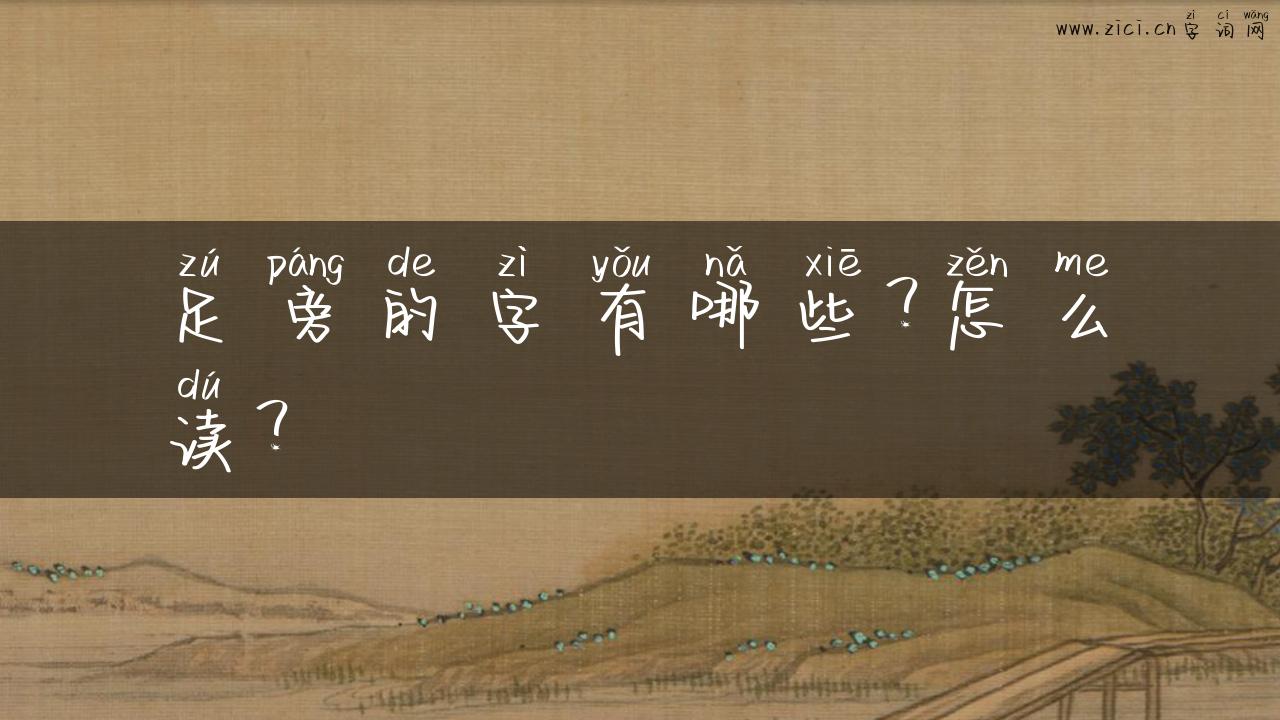 zì cí wǎng
www.zici.cn字词网
zú páng de zì yǒu nǎ xiē zěn me
足旁的字有哪些？怎么
dú
读？